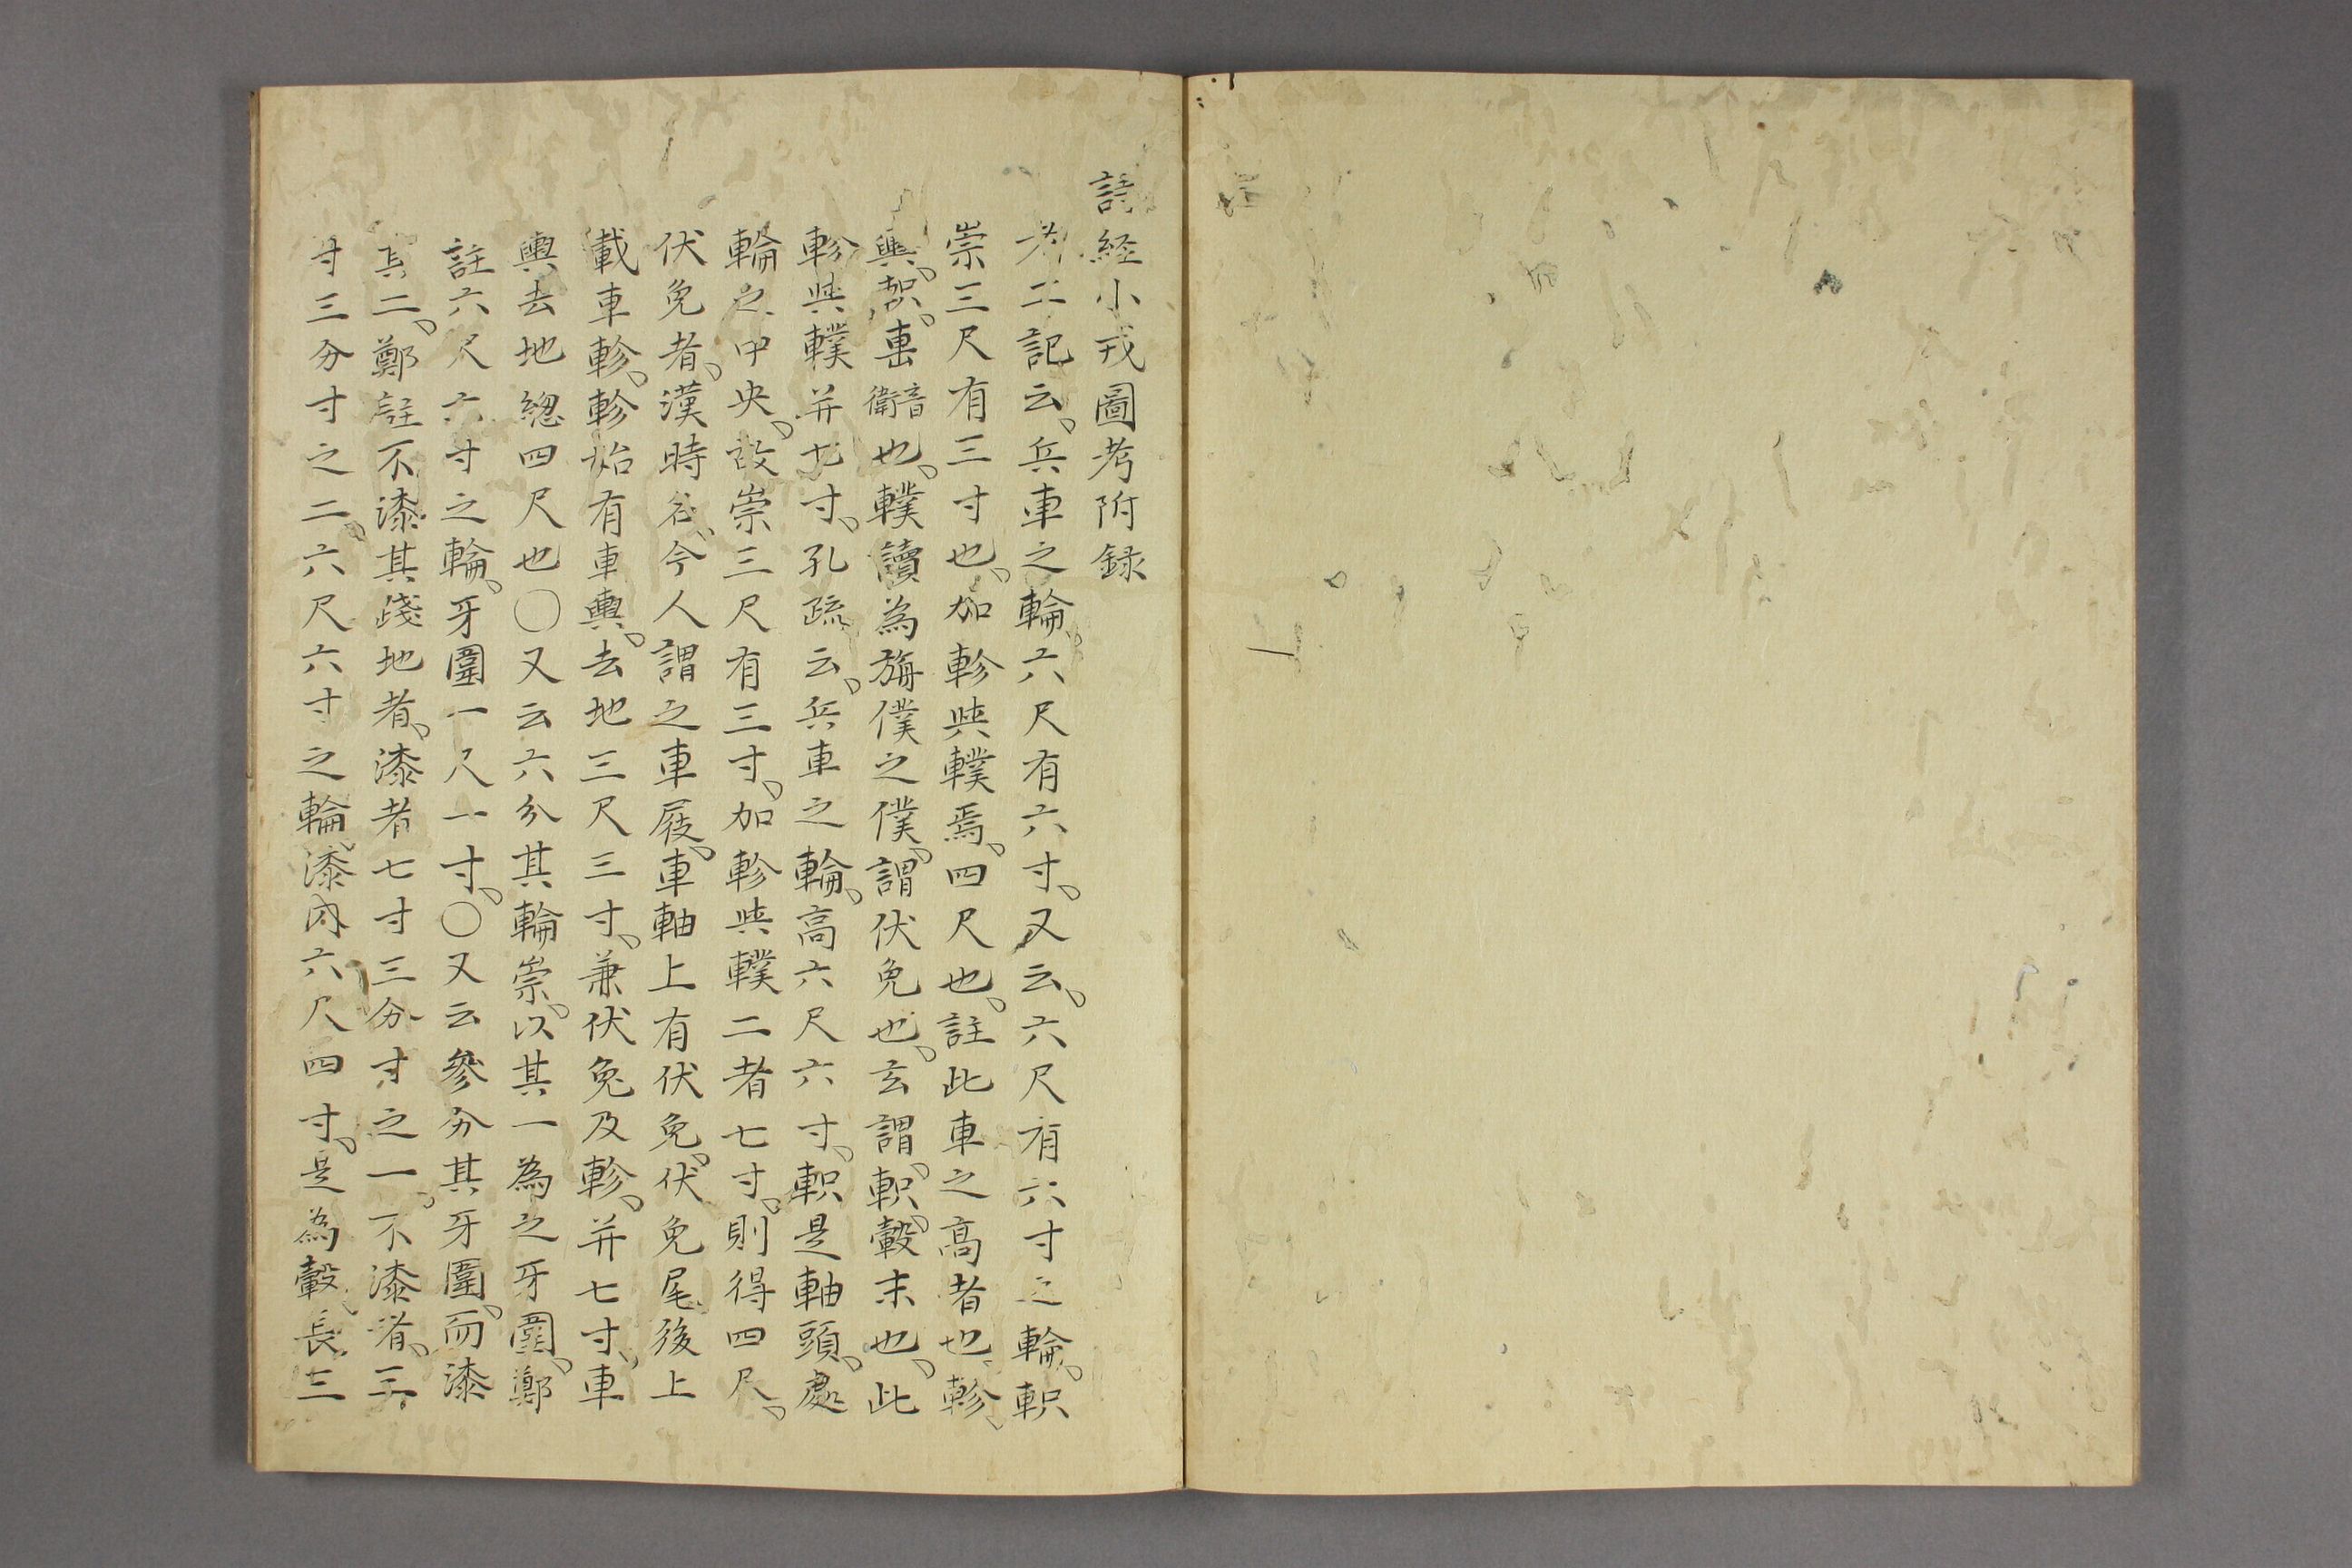 詩経小戎圖考附録
考工記云、兵車之輪、六尺有六寸、又云、六尺有六寸之輪、軹
崇三尺有三寸也、加軫與轐焉、四尺也、註此車之高者也、軫、
輿、軹、軎音衛也、轐讀為旃僕之僕、謂伏兔也、玄謂、軹、轂末也、此
軫與轐并七寸、孔疏云、兵車之輪、高六尺六寸、軹是軸頭、處
輪之中央、故崇三尺有三寸、加軫與轐二者七寸、則得四尺、
伏兔者、漢時名、今人謂之車屐、車軸上有伏兔、伏兔尾後上
載車軫、軫始有車輿、去地三尺三寸、兼伏兔及軫、并七寸、車
輿去地緫四尺也○又云六分其輪崇、以其一為之牙圍、鄭
註六尺六寸之輪、牙圍一尺一寸、○又云參分其牙圍、而漆
其二、鄭註不漆其踐地者、漆者七寸三分寸之一、不漆者、三
寸三分寸之二、六尺六寸之輪、漆内六尺四寸、是為轂長三